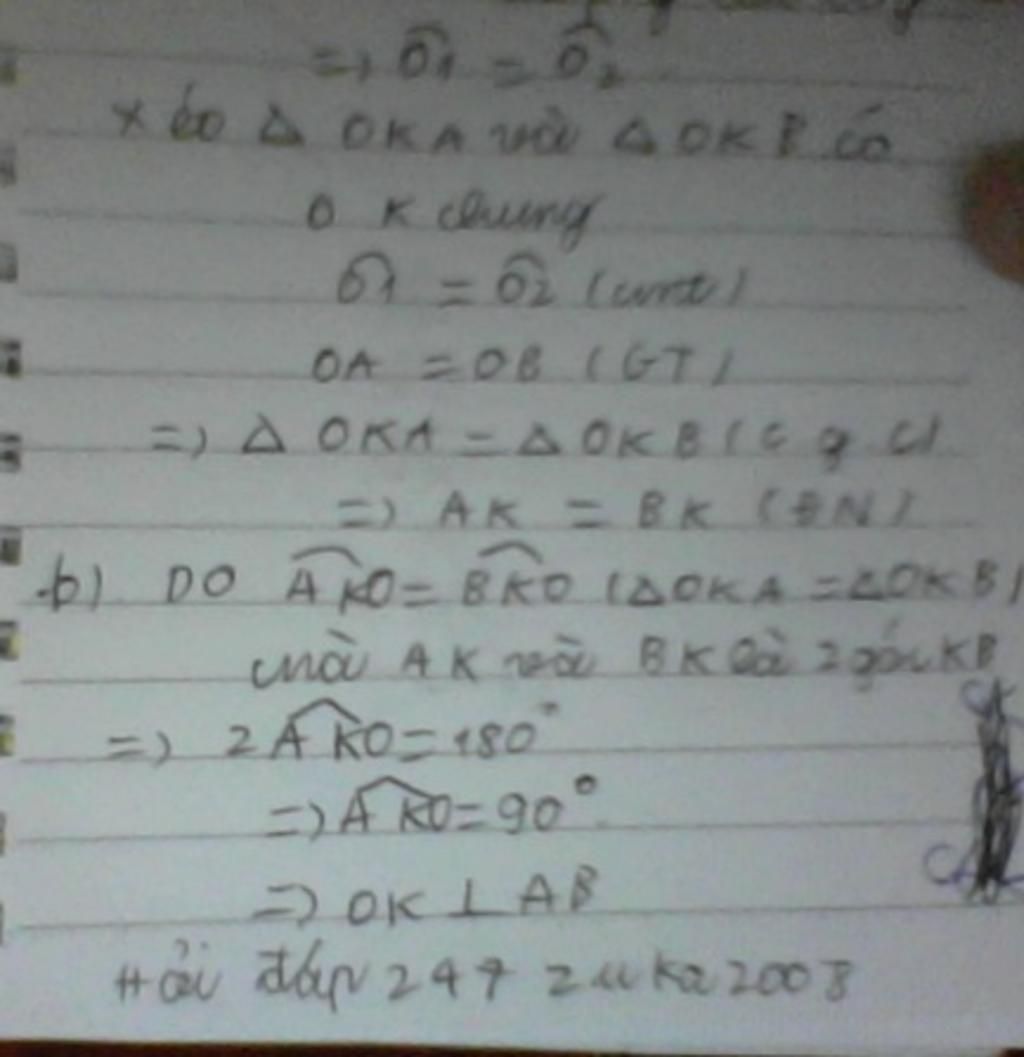 => Ô1 = Ô2
xéo Δ OKA và Δ OKB có
OK chung
Ô1 = Ô2 (cmt)
OA = OB (GT)
=> Δ OKA = Δ OKB (c g c)
=> AK = BK (ĐN)
b) DO AKO = BKO (ΔOKA = ΔOKB)
mà AK và BK là 2 góc KB
=> 2AKO = 180°
=> AKO = 90°
=> OK ⊥ AB
Hỏi đáp 247 zuka2008